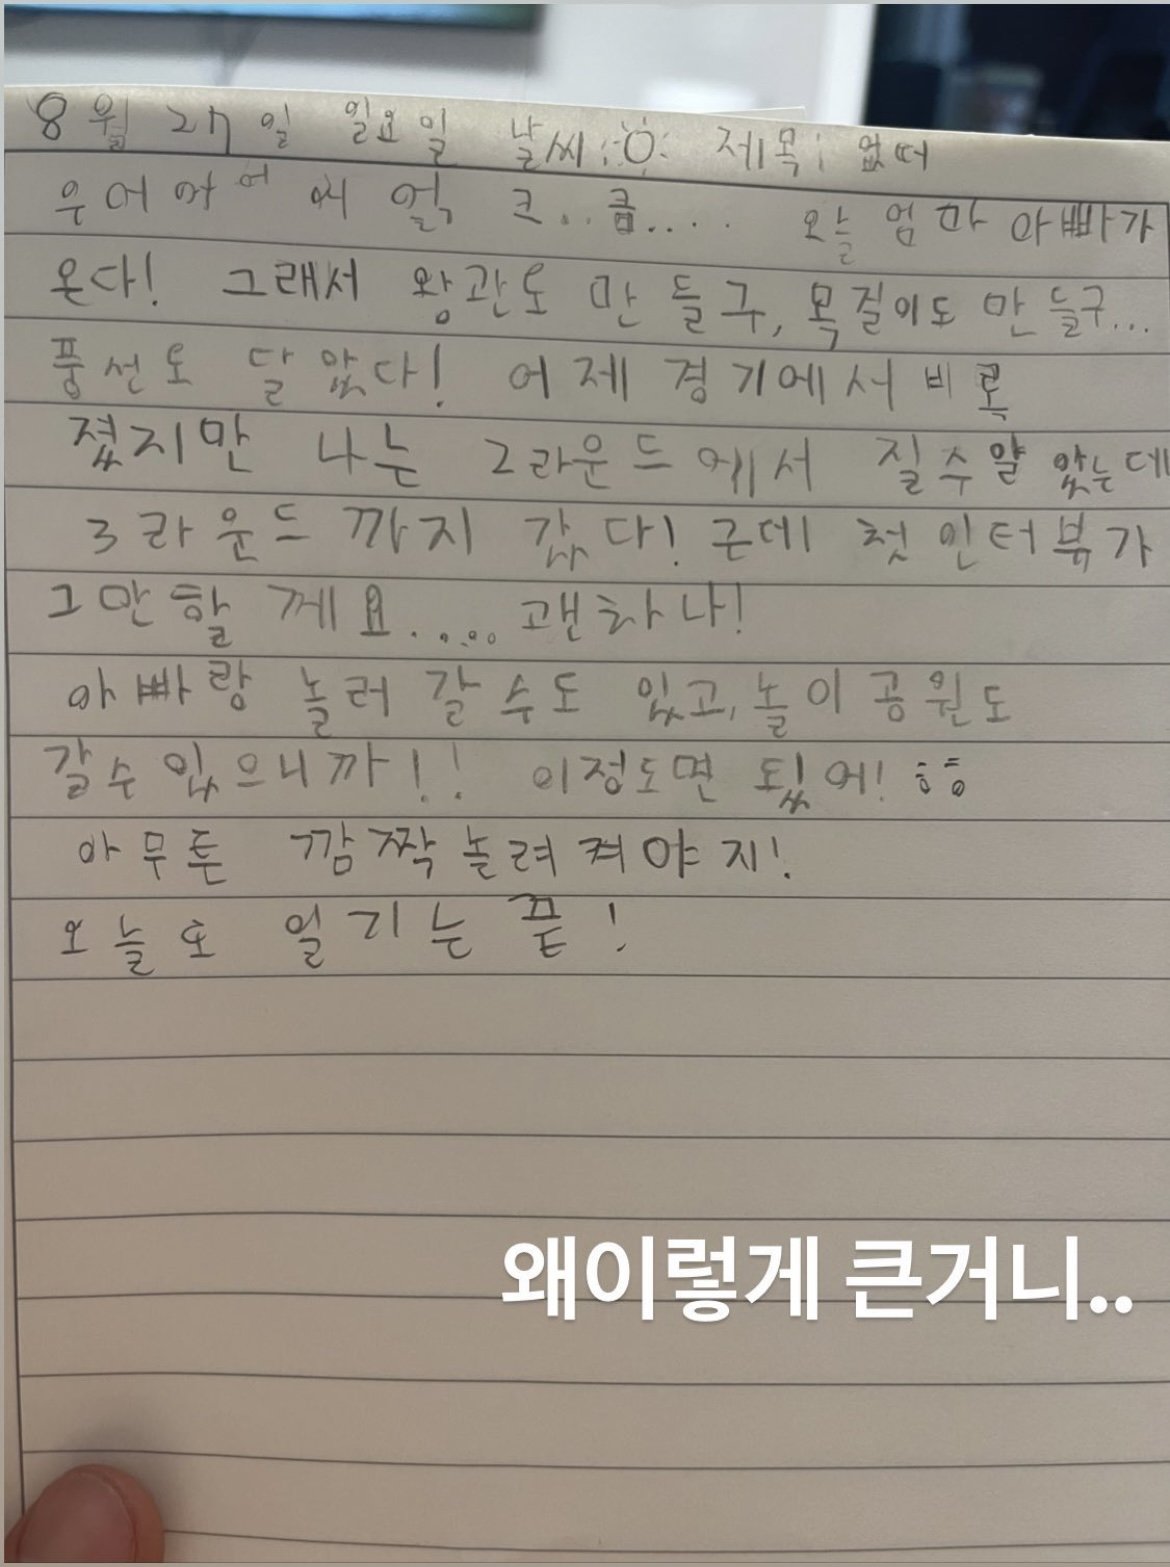 8월 27일 일요일 날씨: 제목: 없떠
우어어어 어 얽 크..큼.... 오늘 엄마 아빠가
온다! 그래서 왕관도 만들구, 목걸이도 만들구...
풍선도 달았다! 어제 경기에서 비록
졌지만 나는 2라운드에서 질수알았는데
3라운드까지 갔다! 근데 첫 인터뷰가
그만할께요..... 괜차나!
아빠랑 놀러 갈수도 있고, 놀이공원도
갈수있으니까!! 이정도면 됬어! ㅎㅎ
아무튼 깜짝 놀려켜야지!
오늘도 일기는 끝!
왜이렇게 큰거니..